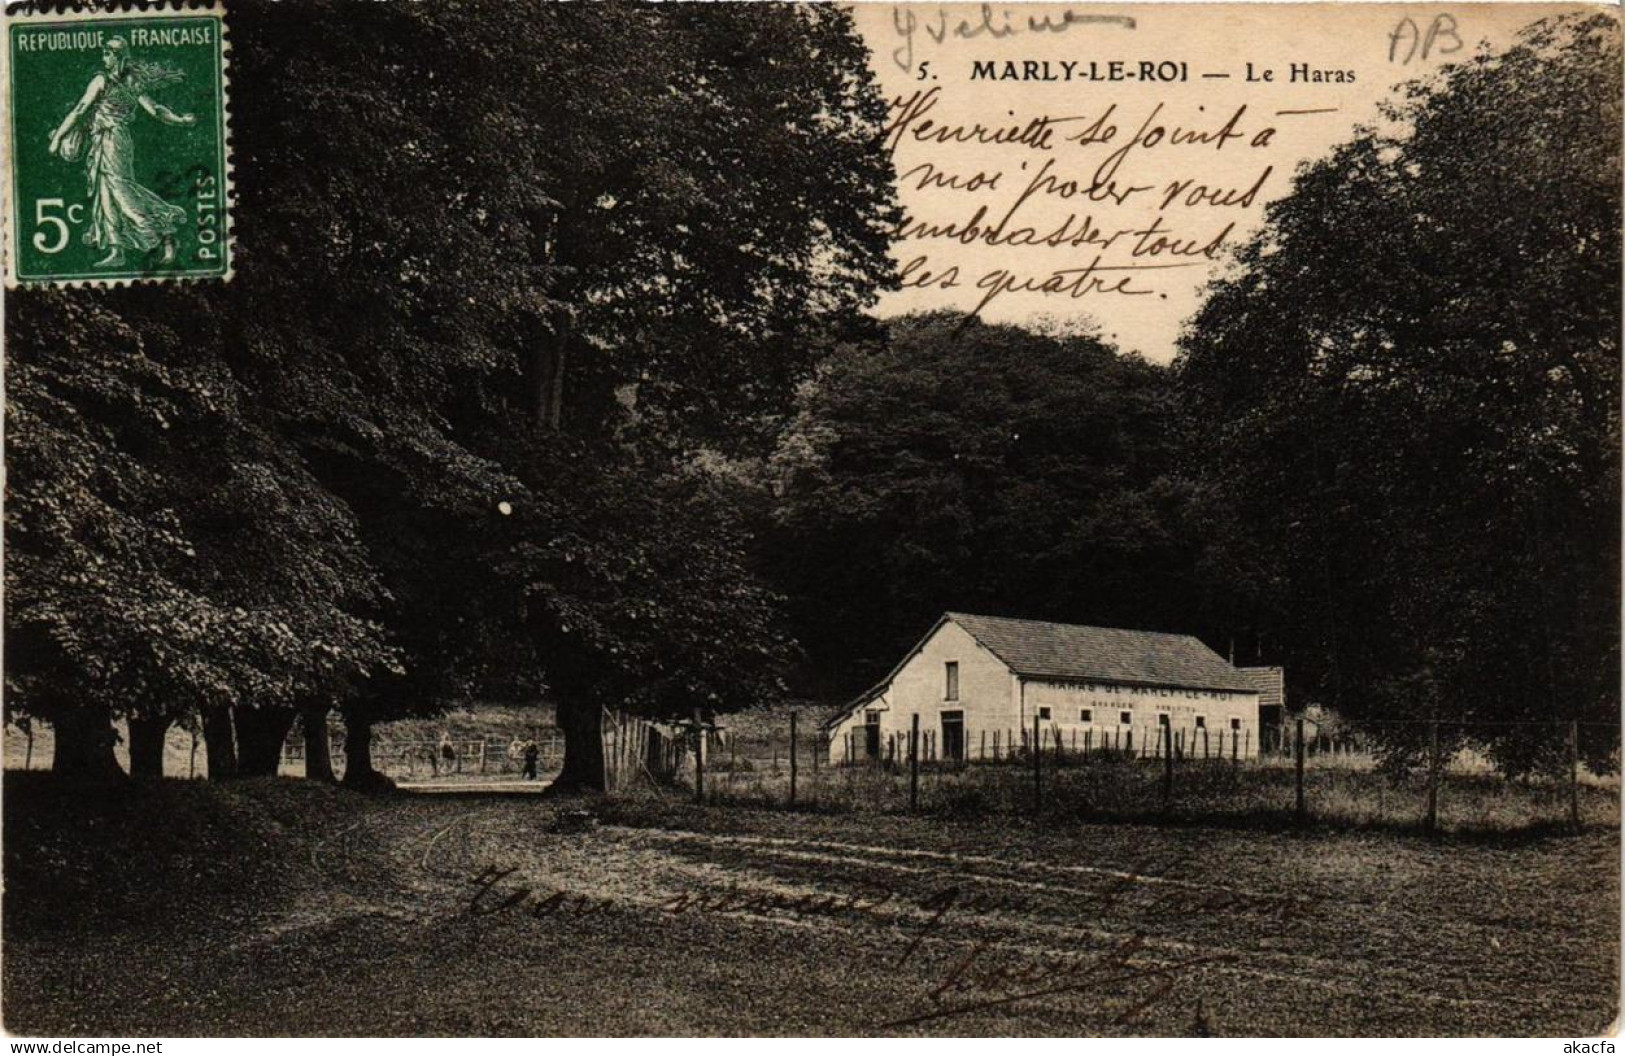 REPUBLIQUE FRANÇAISE
5c
POSTES
Yveline
AB
5. MARLY-LE-ROI — Le Haras
Henriette se joint à
moi pour vous
embrasser tous
les quatre.
HARAS DE MARLY-LE-ROI
Ton neveu qui t'aime
akacfa